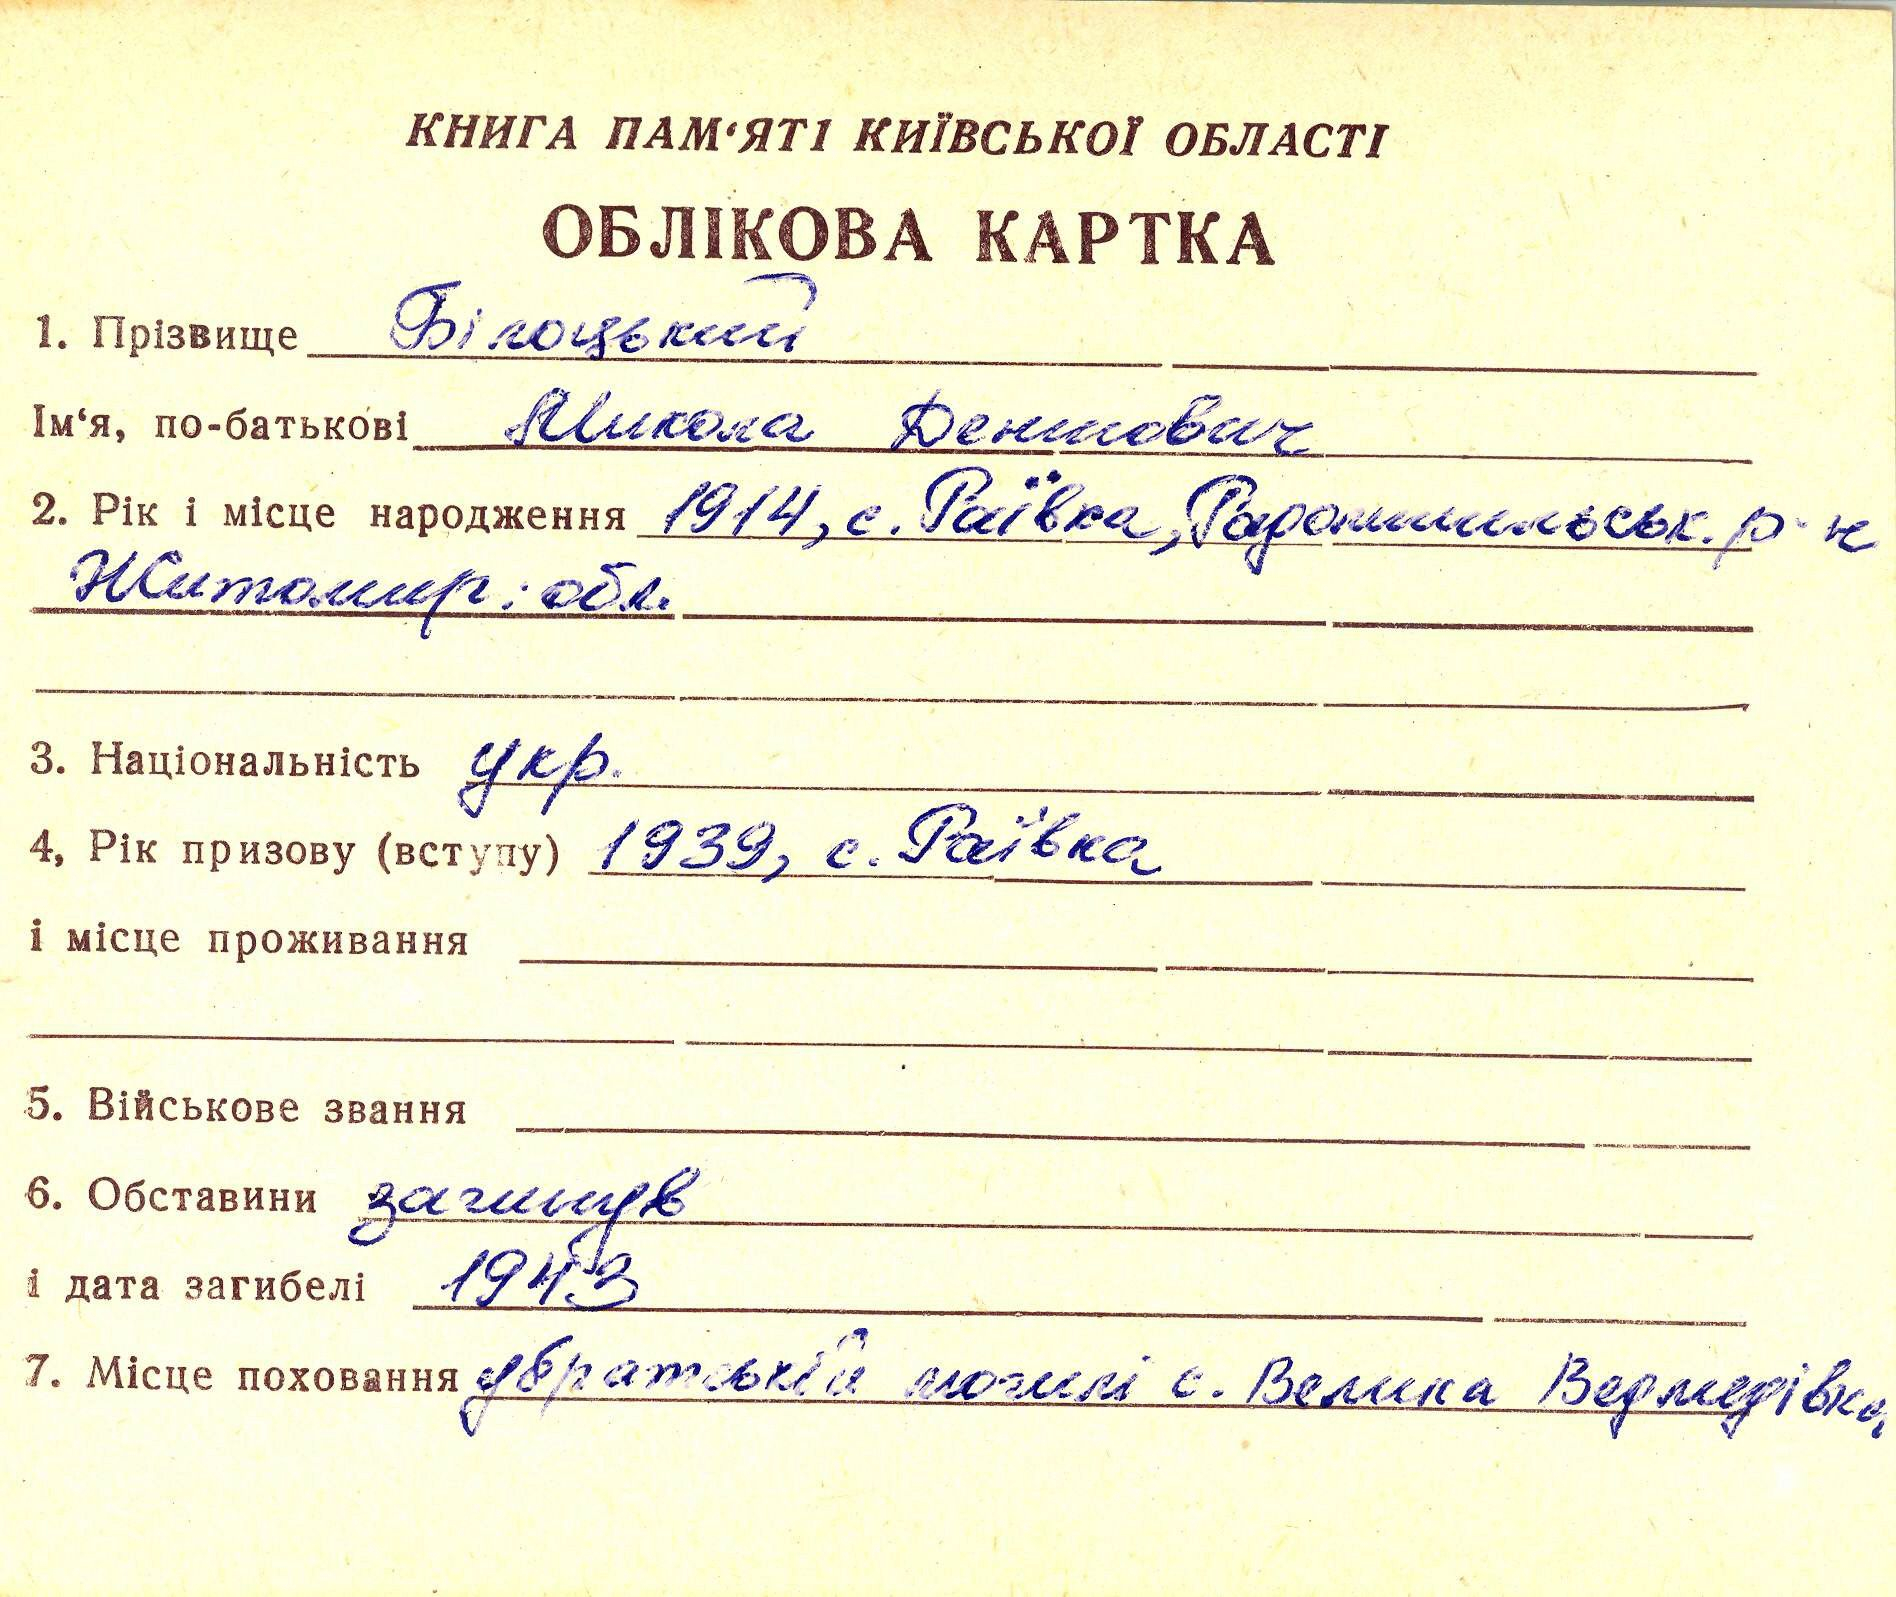 КНИГА ПАМ‘ЯТІ КИЇВСЬКОЇ ОБЛАСТІ
ОБЛІКОВА КАРТКА
1. Прізвище Білоцький
Ім‘я, по-батькові Микола Дентович
2. Рік і місце народження 1914, с. Раївка, Радомишильськ. р-н
Житомир. обл.
3. Національність укр.
4, Рік призову (вступу) 1939, с. Раївка
і місце проживання
5. Військове звання
6. Обставини загинув
і дата загибелі 1943
7. Місце поховання у братській могилі с. Велика Ведмедівка